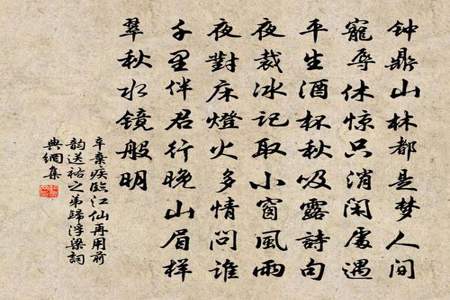 钟鼎山林都是梦人间
寵辱休惊只消闲處遇
平生酒杯秋吸露詩句
夜裁冰记取小窗風雨
夜對床燈火多情問誰
千里伴君行晚山眉样
翠秋水镜般明
辛棄疾臨江仙再用前
韵送祐之弟歸浮梁詞
典網集